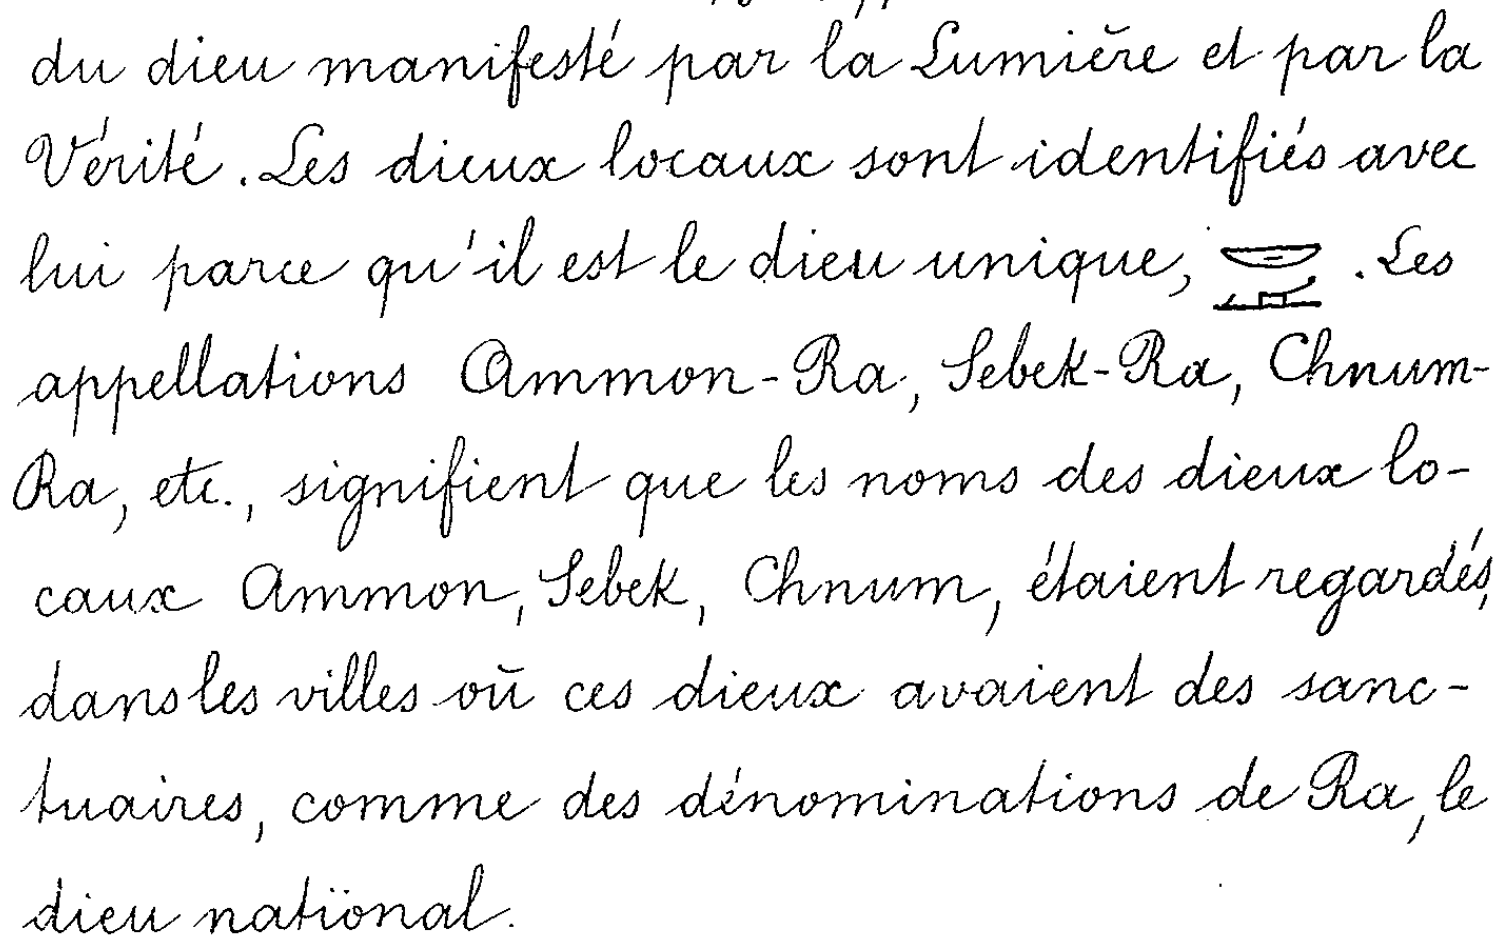 du dieu manifesté par la Lumière et par la
Vérité. Les dieux locaux sont identifiés avec
lui parce qu'il est le dieu unique, . Les
appellations Ammon-Ra, Sebek-Ra, Chnum-
Ra, etc., signifient que les noms des dieux lo-
caux Ammon, Sebek, Chnum, étaient regardés,
dans les villes où ces dieux avaient des sanc-
tuaires, comme des dénominations de Ra, le
dieu national.